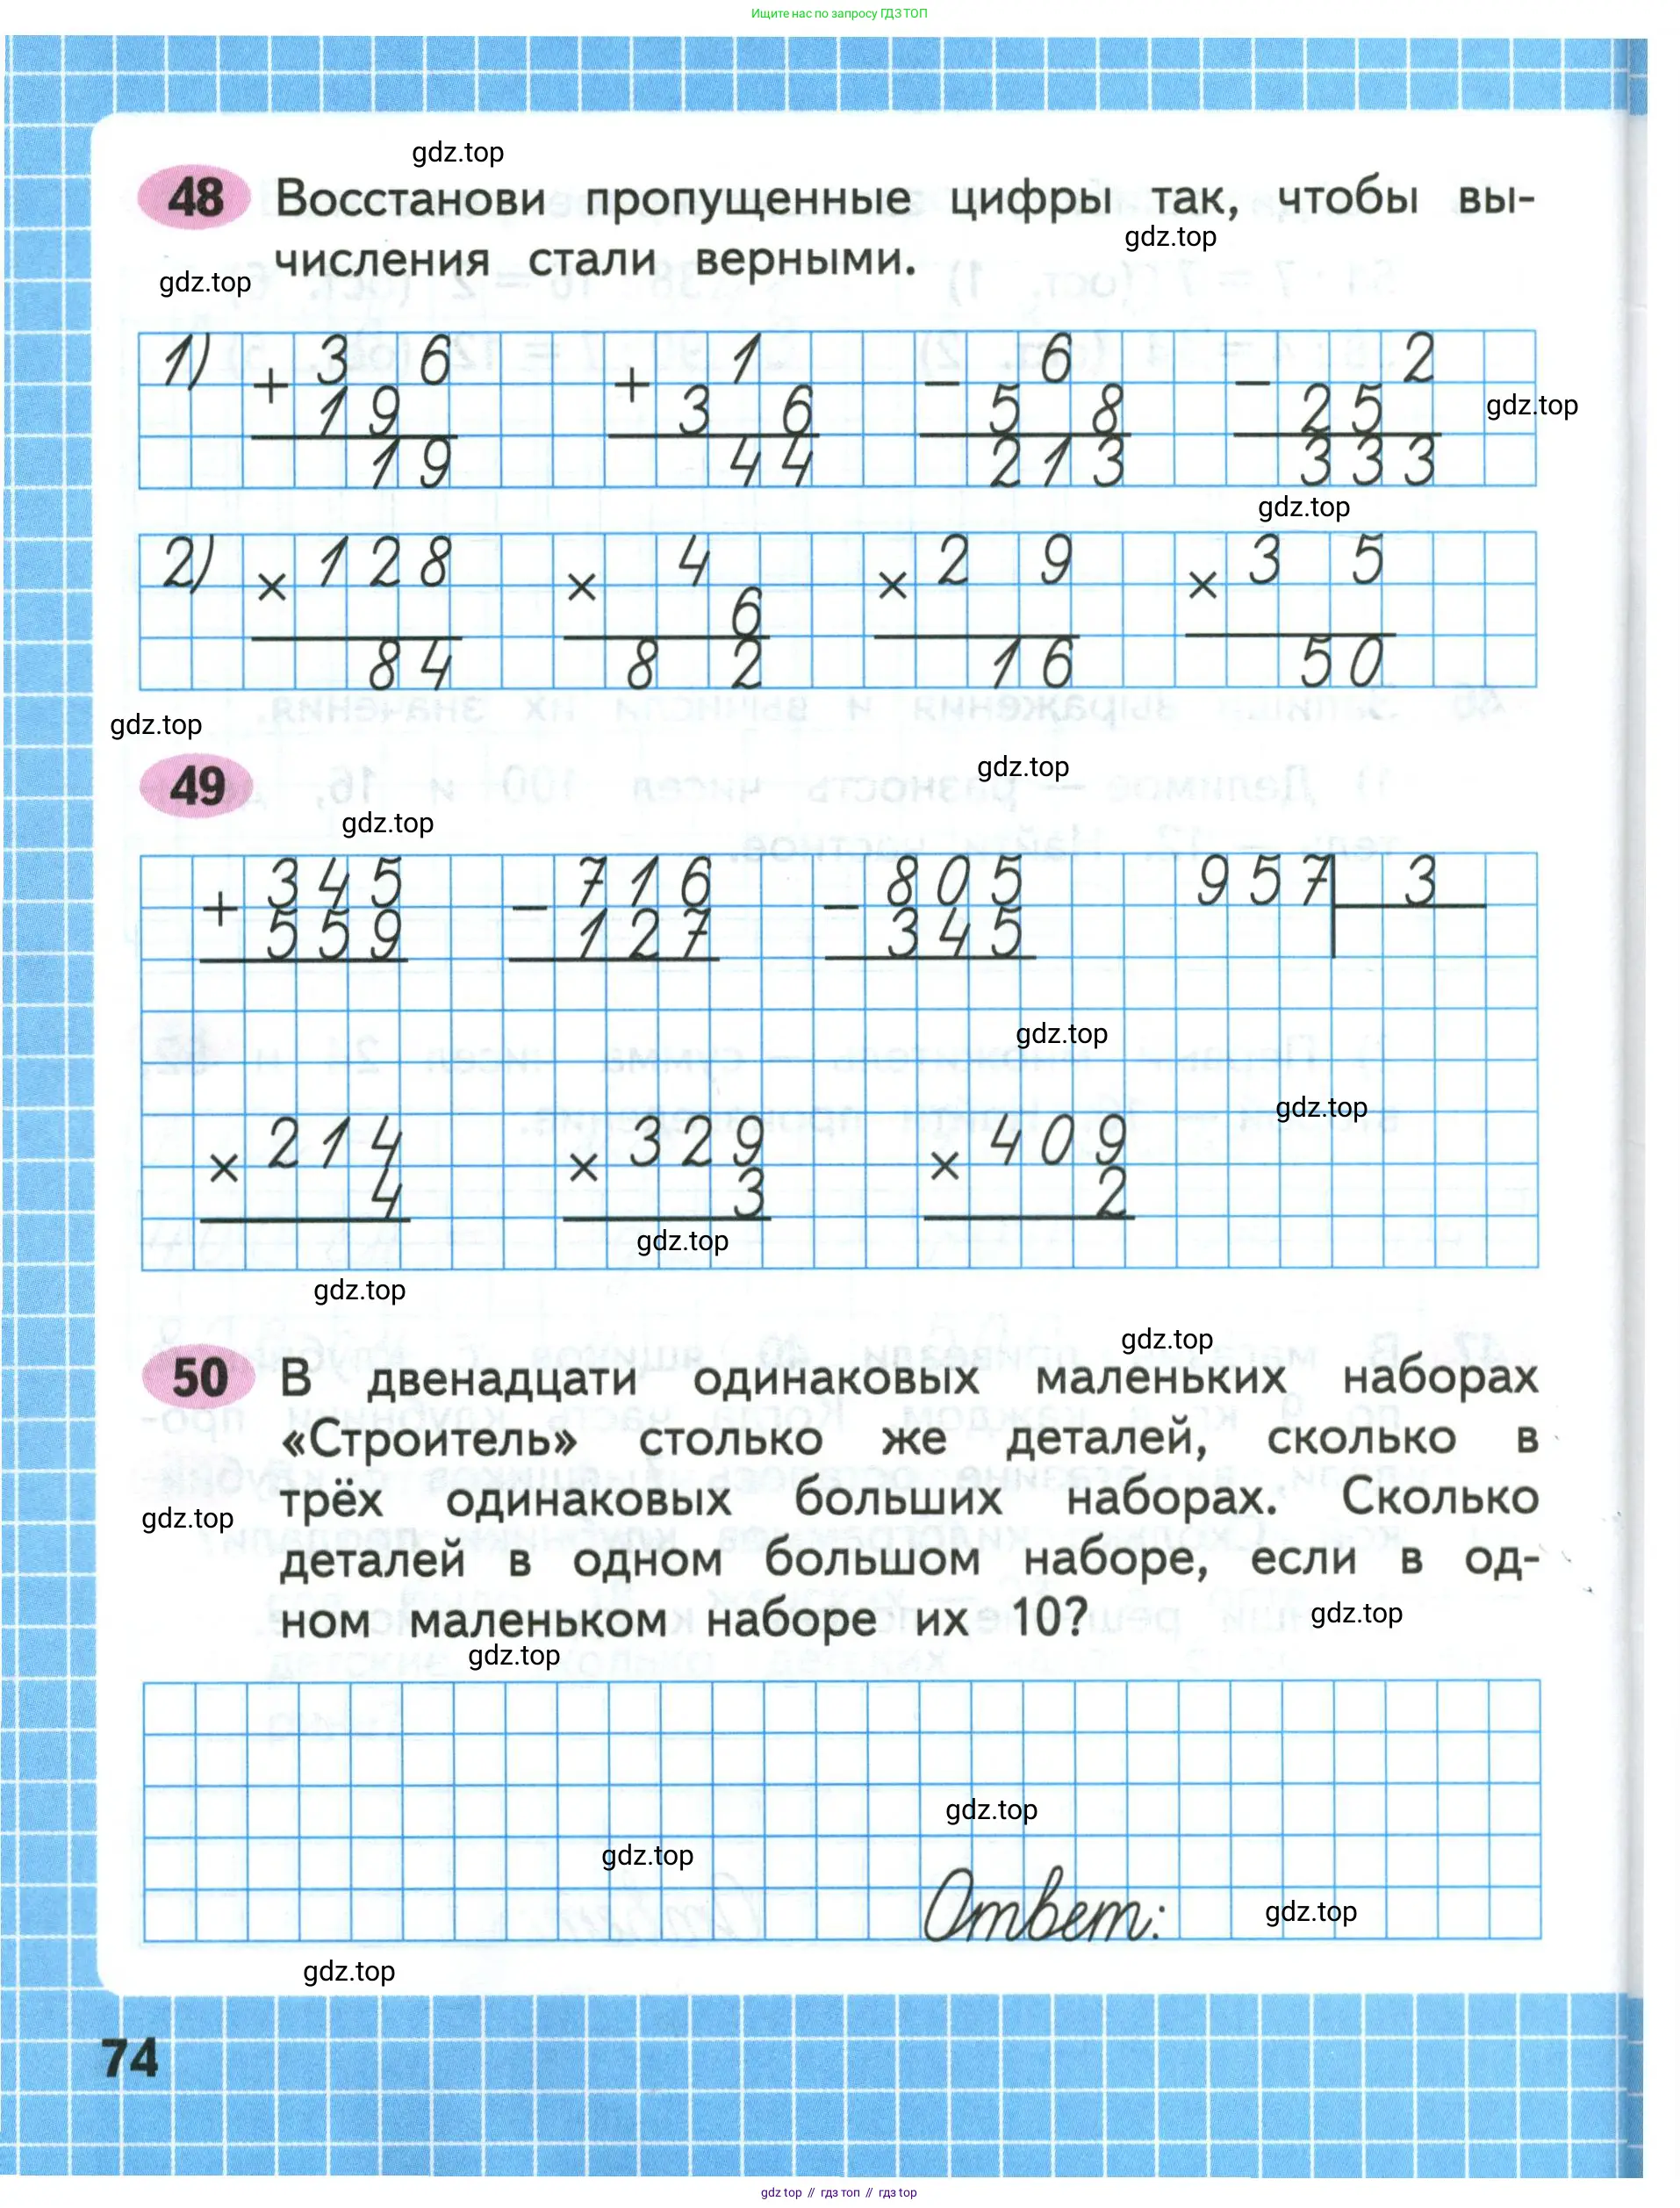 Ищите нас по запросу ГДЗ ТОП
gdz.top
48 Восстанови пропущенные цифры так, чтобы вы-
gdz.top
числения стали верными.
gdz.top
1) + 3 6 + 1 − 6 − 2
1 9 3 6 5 8 2 5
gdz.top
1 9 4 4 2 1 3 3 3 3
gdz.top
2) × 1 2 8 × 4 × 2 9 × 3 5
6
8 4 8 2 1 6 5 0
gdz.top
gdz.top
49
gdz.top
+ 3 4 5 − 7 1 6 − 8 0 5 9 5 7 3
5 5 9 1 2 7 3 4 5
gdz.top
gdz.top
× 2 1 4 × 3 2 9 × 4 0 9
4 3 2
gdz.top
gdz.top
gdz.top
50 В двенадцати одинаковых маленьких наборах
«Строитель» столько же деталей, сколько в
трёх одинаковых больших наборах. Сколько
gdz.top
деталей в одном большом наборе, если в од-
ном маленьком наборе их 10?
gdz.top
gdz.top
gdz.top
gdz.top
Ответ:
gdz.top
gdz.top
74
gdz top // гдз топ // гдз top